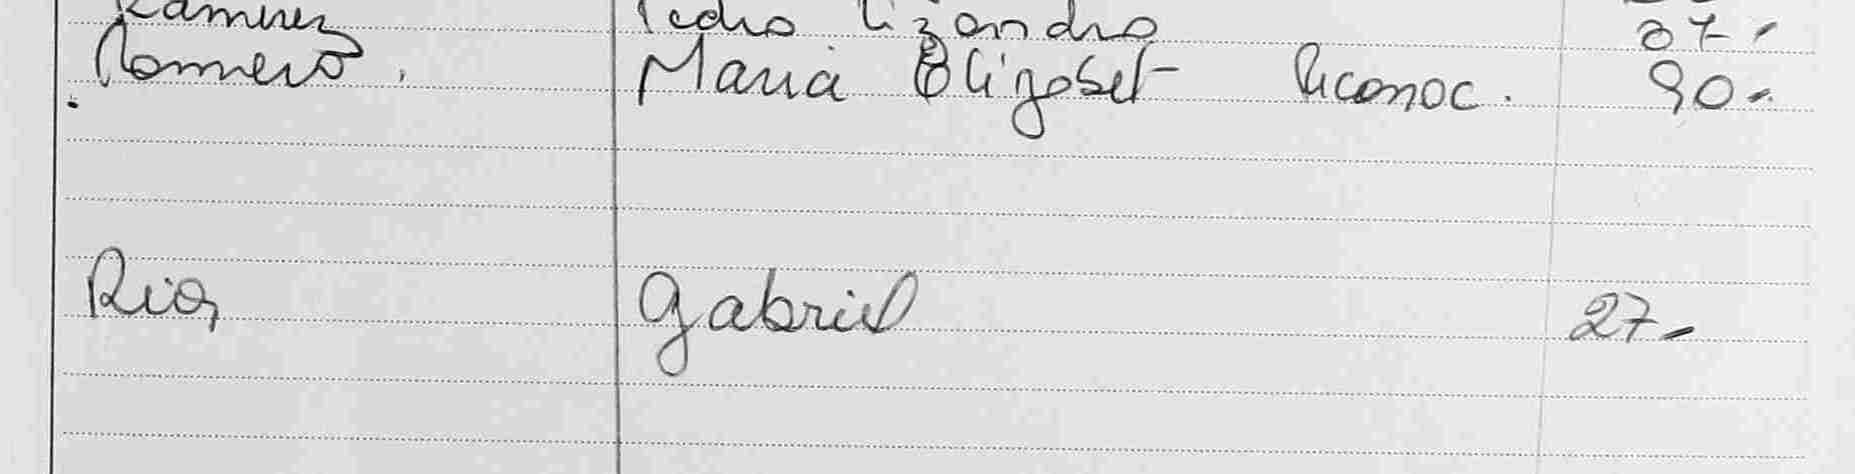 Ramirez Pedro Lizandro 87.-
Romero. Maria Elizabet Reconoc. 90.-
Rios Gabriel 27.-